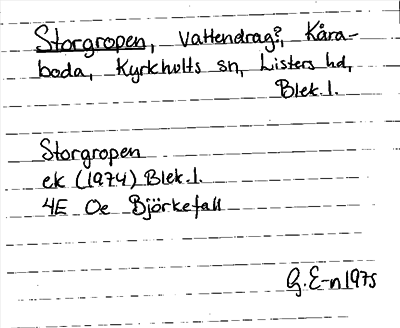 Storgropen, Vattendrag?, Kåra-
boda, Kyrkhults sn, Listers hd,
Blek.l.
Storgropen
ek (1974) Blek.l.
4E Oe Björkefall
G.E-n 1975